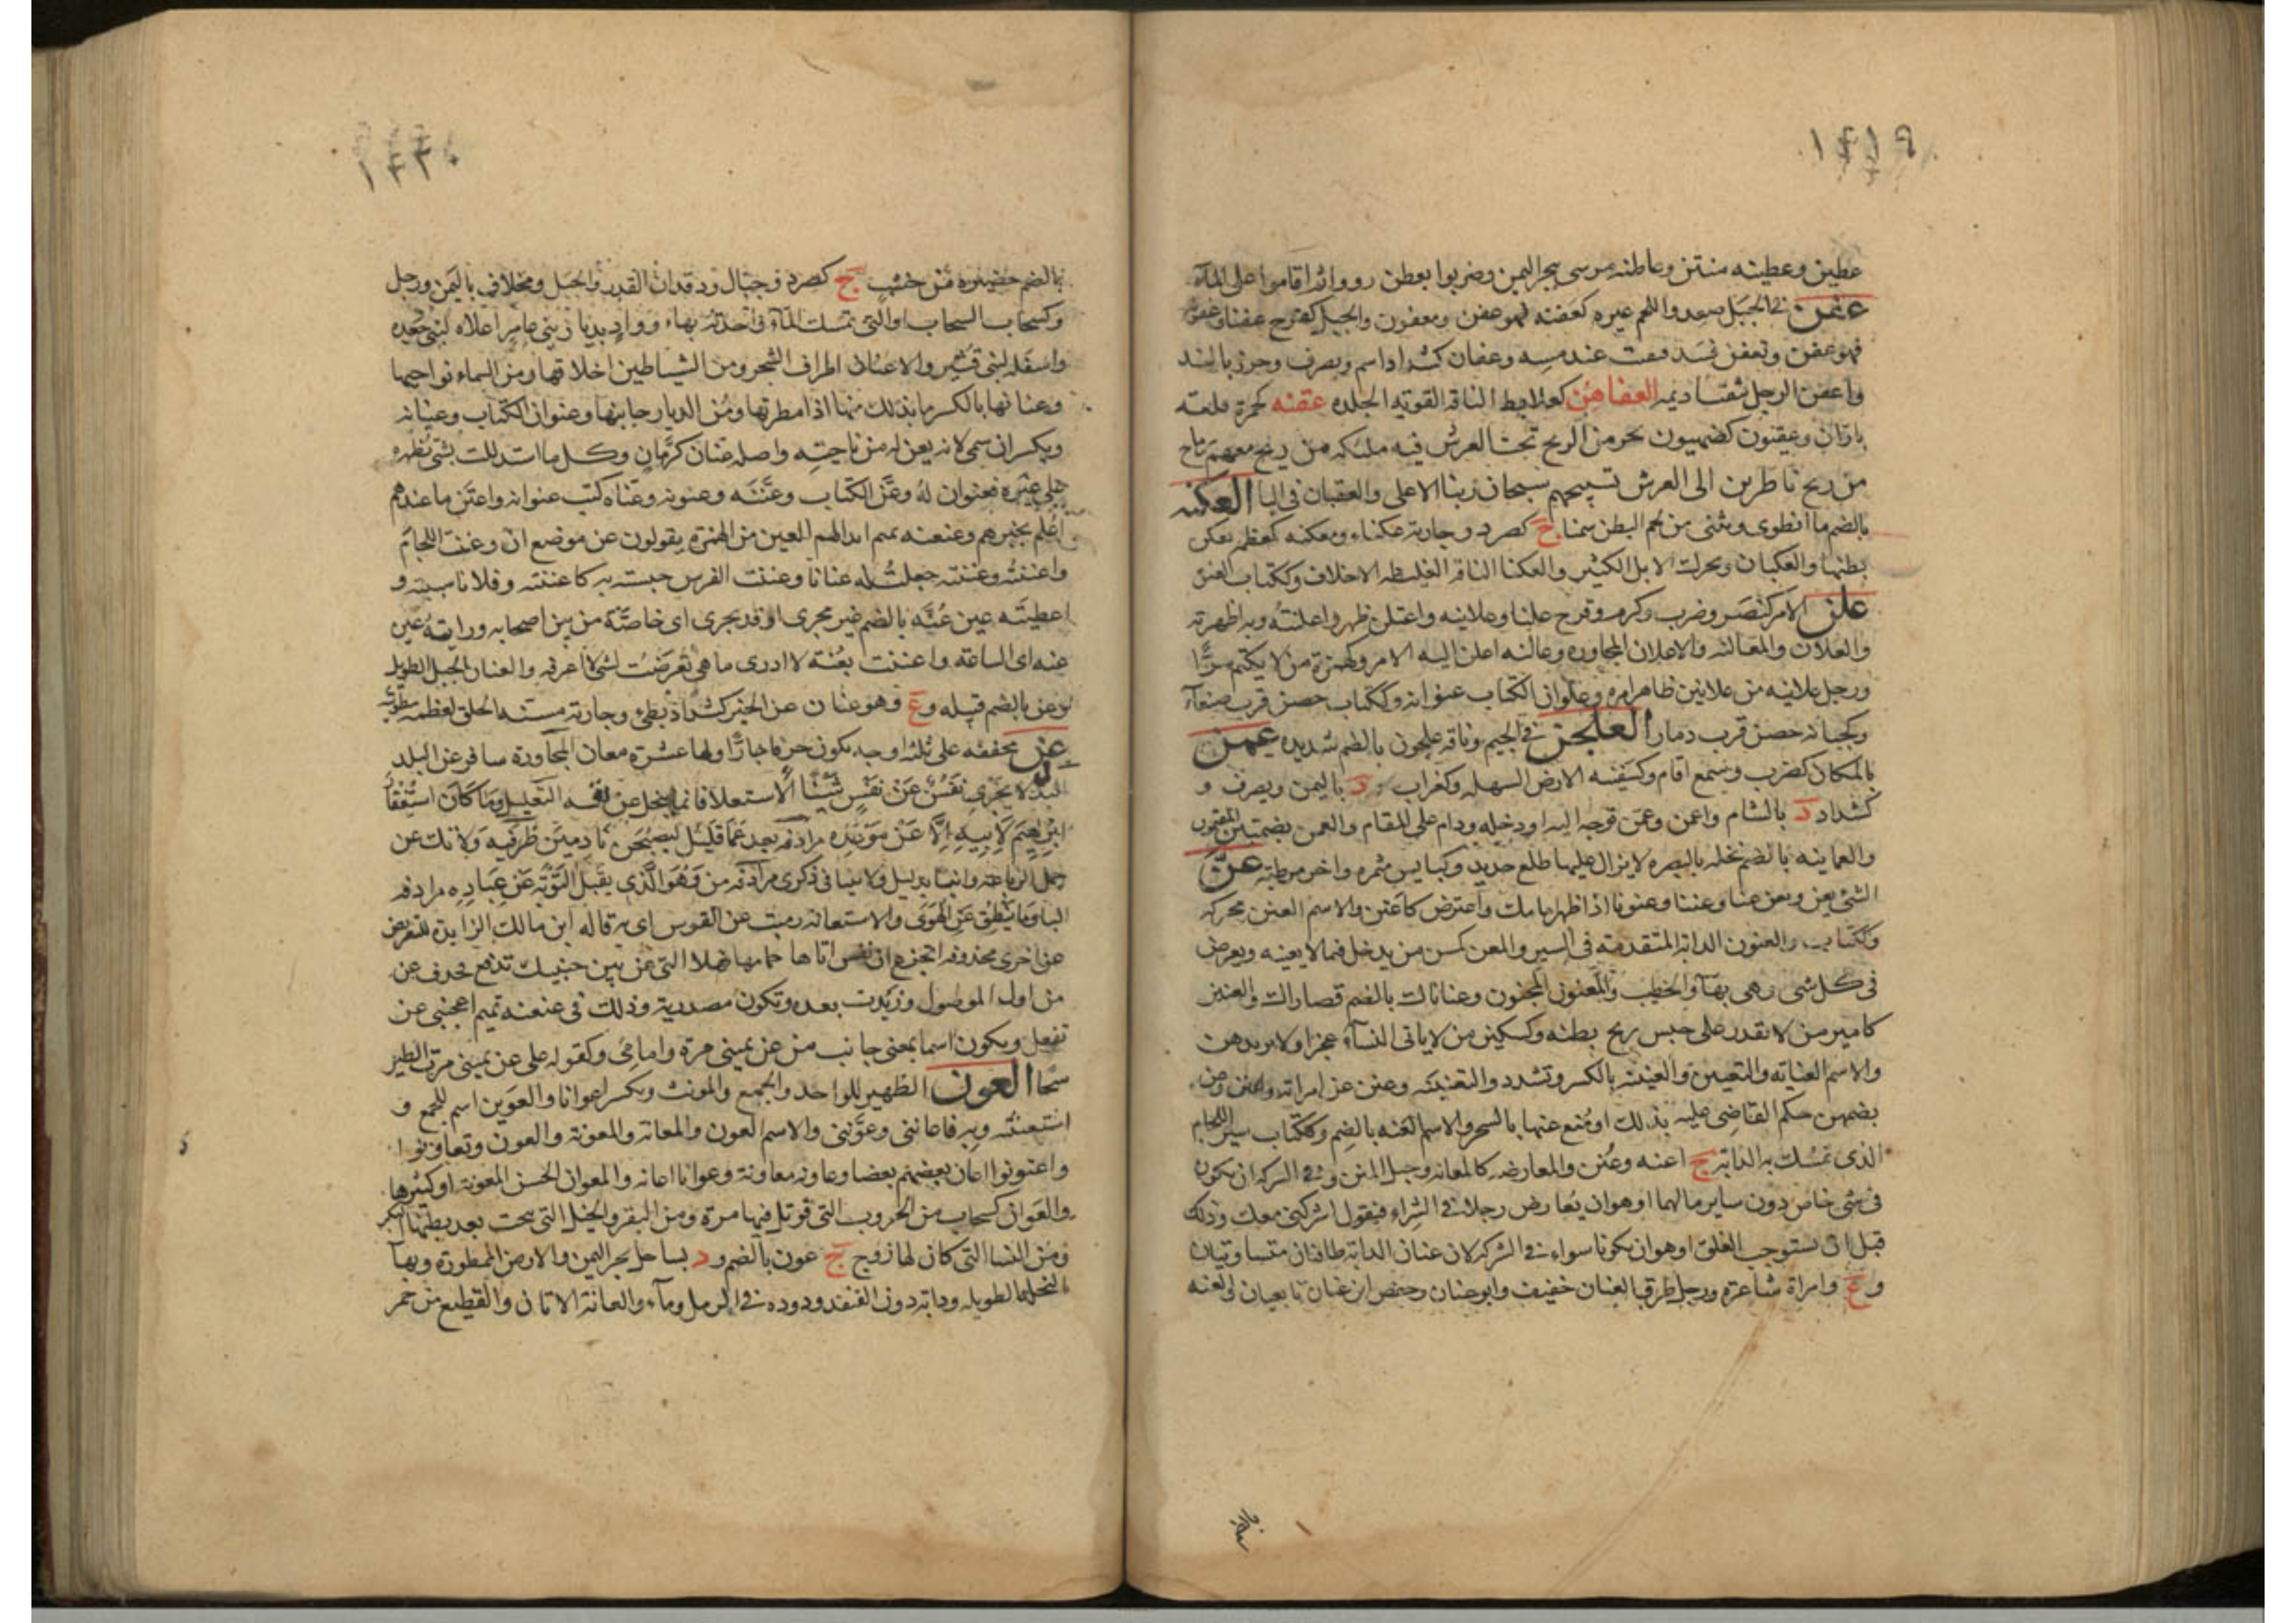 ١٤١٩
عطين وعطينه منتن وعاطنه مرسى ببحر اليمن وضربوا بعطن رووا ثم اقاموا على المآء
عفن في الجبل صعد واللحم غيره كعفنه فهو عفن ومعفون والحبل كفرح عفنا وعفونه
فهو عفن وتعفن فسد فتفتت عند مسه وعفان كشداد اسم ويصرف
واعفن الرجل ثقبا ديمه العفاهن كعلابط الناقه القويه الجلده عقنه كحمزة قلعه
باران وعقنون كضيمون بحر من الريح تحت العرش فيه ملئكه من ريح معهم رماح
من ريح ناظرين الى العرش تسبيحهم سبحان ربنا الاعلى والعقبان في البا العكنه
بالضم ما انطوى وتثنى من لحم البطن سمنا ج كصرد وجارية عكناء ومعكنه كمعظمه تعكن
بطنها والعكنان ويحرك الابل الكثير والعكنا الناقه الغليظه الاخلاف وككتاب العنق
علن الامر كنصر وضرب وكرم وفرح علنا وعلانيه واعتلن ظهر واعلنته وبه اظهرته
والعلان والمعالنه والاعلان المجاهره وعالنه اعلن اليه الامر وكهمزة من لا يكتم سرًّا
ورجل علانيه من علانين ظاهر امره وعلوان الكتاب عنوانه وككتاب حصن قرب صنعآء
وكجبانه حصن قرب ذمار العلجن في الجيم وناقه علجون بالضم شديده عمن
بالمكان كضرب وسمع اقام وكسفينه الارض السهله وكغراب د باليمن ويصرف و
كشداد د بالشام واعمن وعمن توجه اليه او دخله ودام على المقام والعمن بضمتين المقيمون
والعمانيه بالضم نخله بالبصره لا يزال عليها طلع جديد وكبايس مثمره واخر مرطبه عنّ
الشى يعن ويعن عنا وعننا وعنونا اذا ظهر امامك واعترض كاعتن والاسم العنن محركه
وككتاب والعنون الدابه المتقدمه في السير والمعن كمسن من يدخل فيما لا يعنيه ويعرض
فى كل شى وهى بهآء والخطيب والمعنون المجنون وعناناك بالضم قصاراك والعنين
كامير من لا يقدر على حبس ريح بطنه وكسكين من لا ياتى النسآء عجزا او لا يريدهن
والاسم العنانه والتعنين والعنينه بالكسر وتشدد والتعنينه وعنن عن امراته واعنن وعن
بضمهن حكم القاضى عليه بذلك او مُنع عنها بالسحر والاسم العنه بالضم وككتاب سير اللجام
الذى تمسك به الدابه ج اعنه وعُنن والمعارضه كالمعانه وحبل المتن وفى الشركه ان تكون
فى شى خاص دون ساير مالهما او هو ان يعارض رجلا فى الشراء فيقول اشركنى معك وذلك
قبل ان يستوجب الغلق او هو ان يكونا سواء فى الشركه لان عنان الدابه طاقتان متساويتان
و ع وامراة شاعرة ورجل طرف العنان خفيف وابو عنان وحفص ابن عنان تابعيان والعنه
١٤٢٠
بالضم حضيره من خشب ج كصرد وجبال ودقدان القدر والحبل ومخلاف باليمن ورجل
وكسحاب السحاب او التى تمسك المآء واحدته بهاء وواد بديار بنى عامر اعلاه لبنى جعده
واسفله لبنى قشير والاعنان اطراف الشجر ومن الشياطين اخلاقها ومن السماء نواحيها
وعنانها بالكسر ما بدا لك منها اذا نظرتها ومن الدار جانبها وعنوان الكتاب وعنيانه
ويكسران سمى لانه يعن له من ناحيته واصله عنان كرمان وكل ما استدللت بشى تظهره
على غيره فعنوان لهُ وعنّ الكتاب وعنّنه وعنونه وعنّاه كتب عنوانه واعتن ما عندهم
اعلم بخبرهم وعنعنه تميم ابدالهم العين من الهمزة يقولون عن موضع ان وعنت اللجامَ
واعننته وعننته جعلت له عنانا وعننت الفرس حبسته به كاعننته وفلانا سببته و
اعطيته عين عُنَّه بالضم غير مجرى او قد يجرى اى خاصّة من بين اصحابه ورايته عين
عنه اى الساعة واعننت بعُنة لا ادرى ما هى تعرضت لشى لا اعرفه والعنان الحبل الطويل
وعن بالضم قبيله و ع وهو عنان عن الخير كشداد بطئ وجارية
عن مخففه على ثلثه اوجه يكون حرفا جارًّا ولها عشرة معان المجاوزة سافر عن البلد
البدل لا يجزى نفسٌ عن نفسٍ شيئًا الاستعلا فانما يبخل عن نفسه التعليل وما كان استغفار
ابرهيم لابيه إلا عن موعدة مرادفه بعد عمّا قليل ليصبحن نادمين ظرفيه ولا تك عن
حمل الرباعه وانيا بدليل ولا تنيا فى ذكرى مرادفه من وهو الذى يقبل التوبة عن عباده مرادفه
البا وما ينطق عن الهوى والاستعانه رميت عن القوس اى به قاله ابن مالك الزايدة للتعويض
عن اخرى محذوفه اتجزع ان نفس اتاها حمامها فهلا التى عن بين جنبيك تدفع فحذف عن
من اول الموصول وزيدت بعده وتكون مصدرية وذلك فى عنعنه تميم اعجبنى عن
تفعل ويكون اسما بمعنى جانب من عن يمينى مرة وامامى وكقوله على عن يمينى مرت الطير
سنحا العون الظهير للواحد والجمع والمونث ويكسر اعوانا والعوين اسم للجمع و
استعنته وبه فاعاننى وعوّننى والاسم العون والمعانه والمعونة والعون وتعاونوا
واعتونوا اعان بعضهم بعضا وعاونه معاونة وعوانا اعانه والمعوان الحسن المعونة او كثيرها
والعَوان كسحاب من الحروب التى قوتل فيها مرة ومن البقر والخيل التى نتجت بعد بطنها البكر
ومن النسا التى كان لها زوج ج عون بالضم و د بساحل بحر اليمن والارض الممطورة وبهآ
النخله الطويله ودابه دون القنفذ ودوده فى الرمل ومآء والعانة الاتان والقطيع من حمر